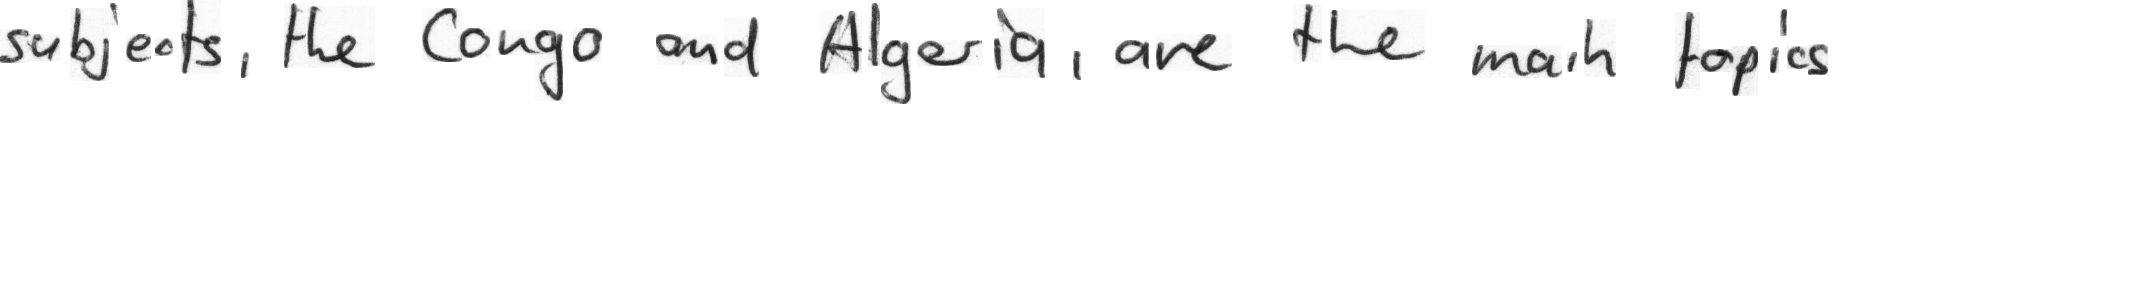 subjects, the Congo and Algeria, are the main topics